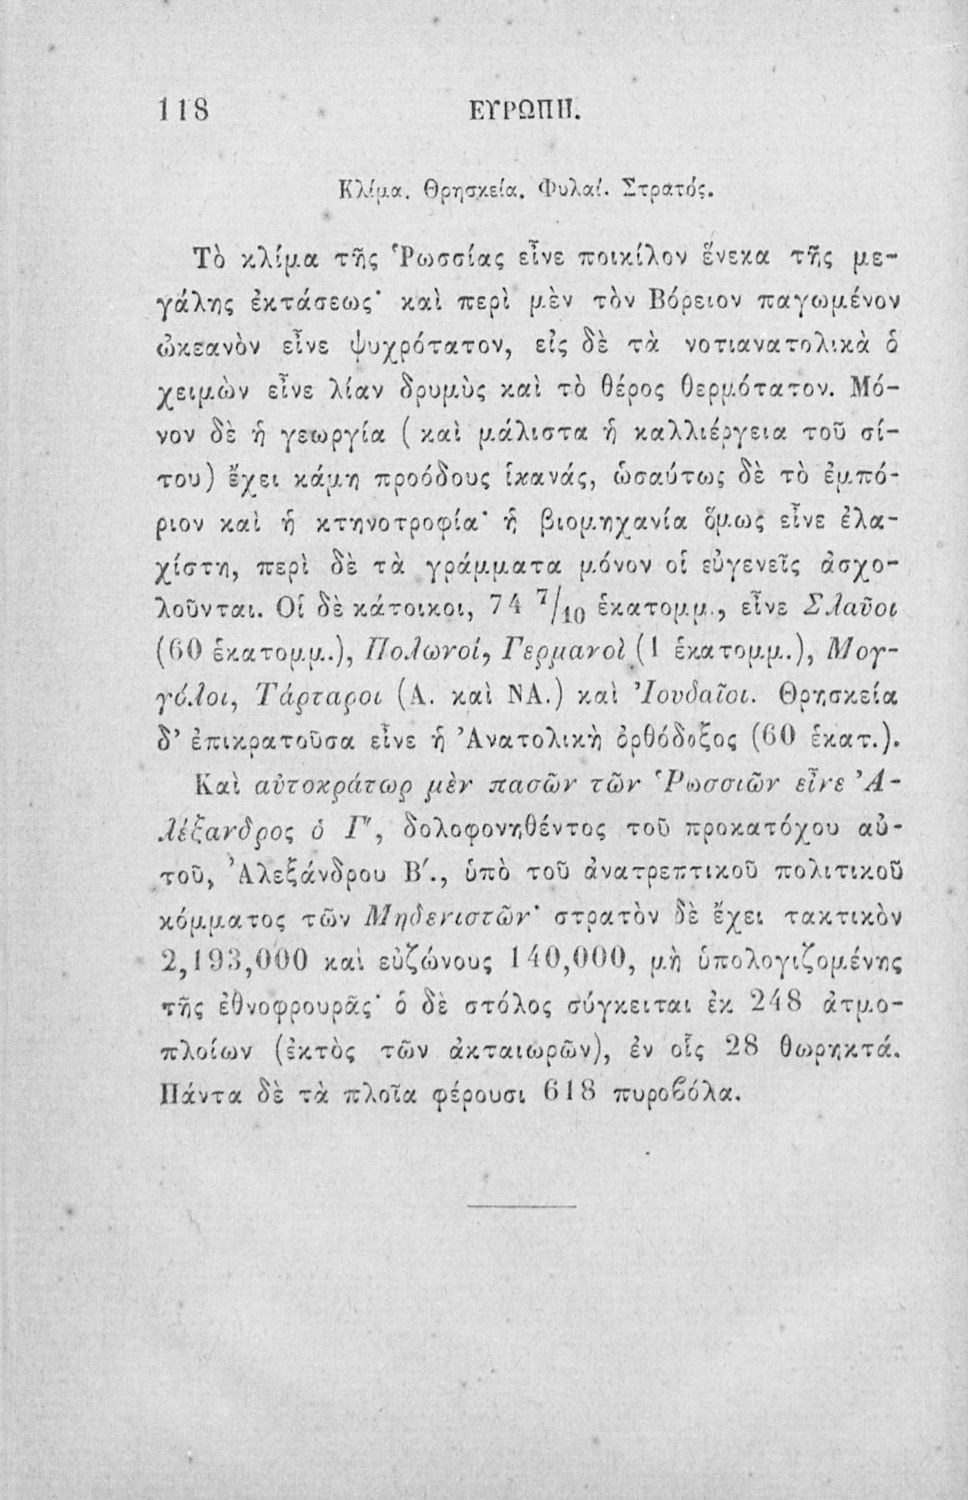 118 ΕΥΡΩΠΗ.
Κλίμα. Θρησκεία. Φυλαί. Στρατός.
Τὸ κλίμα τῆς Ῥωσσίας εἶνε ποικίλον ἕνεκα τῆς με-
γάλης ἐκτάσεως· καὶ περὶ μὲν τὸν Βόρειον παγωμένον
ὠκεανὸν εἶνε ψυχρότατον, εἰς δὲ τὰ νοτιανατολικὰ ὁ
χειμὼν εἶνε λίαν δρυμὺς καὶ τὸ θέρος θερμότατον. Μό-
νον δὲ ἡ γεωργία (καὶ μάλιστα ἡ καλλιέργεια τοῦ σί-
του) ἔχει κάμη προόδους ἱκανάς, ὡσαύτως δὲ τὸ ἐμπό-
ριον καὶ ἡ κτηνοτροφία· ἡ βιομηχανία ὅμως εἶνε ἐλα-
χίστη, περὶ δὲ τὰ γράμματα μόνον οἱ εὐγενεῖς ἀσχο-
λοῦνται. Οἱ δὲ κάτοικοι, 74 7/10 ἑκατομμ., εἶνε Σλαῦοι
(60 ἑκατομμ.), Πολωνοί, Γερμανοὶ (1 ἑκατομμ.), Μογ-
γόλοι, Τάρταροι (Α. καὶ ΝΑ.) καὶ Ἰουδαῖοι. Θρησκεία
δ’ ἐπικρατοῦσα εἶνε ἡ Ἀνατολικὴ ὀρθόδοξος (60 ἑκατ.).
Καὶ αὐτοκράτωρ μὲν πασῶν τῶν Ῥωσσιῶν εἶνε Ἀ-
λέξανδρος ὁ Γ′, δολοφονηθέντος τοῦ προκατόχου αὐ-
τοῦ, Ἀλεξάνδρου Β′., ὑπὸ τοῦ ἀνατρεπτικοῦ πολιτικοῦ
κόμματος τῶν Μηδενιστῶν· στρατὸν δὲ ἔχει τακτικὸν
2,193,000 καὶ εὐζώνους 140,000, μὴ ὑπολογιζομένης
τῆς ἐθνοφρουρᾶς· ὁ δὲ στόλος σύγκειται ἐκ 248 ἀτμο-
πλοίων (ἐκτὸς τῶν ἀκταιωρῶν), ἐν οἷς 28 θωρηκτά.
Πάντα δὲ τὰ πλοῖα φέρουσι 618 πυροβόλα.